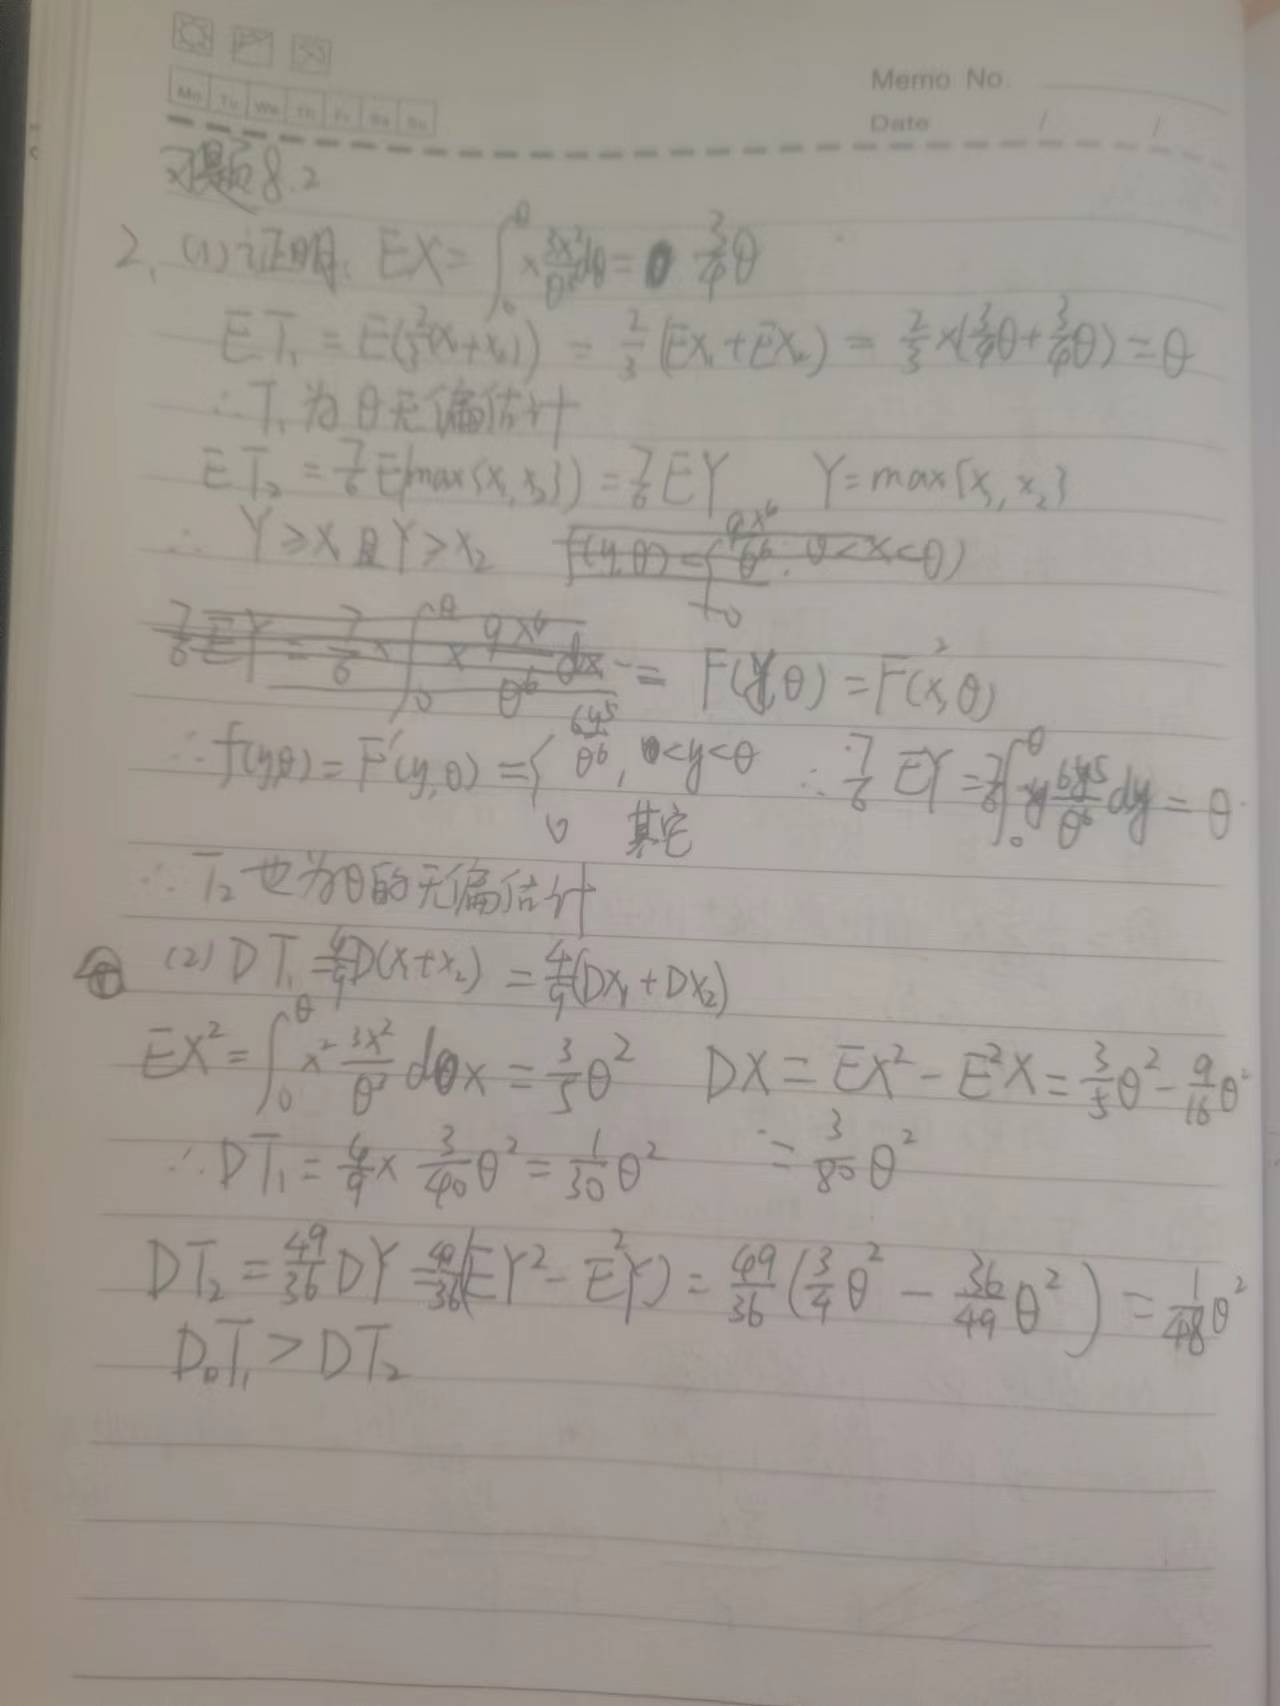 Memo No.
Mo Tu We Th Fr Sa Su
Date / /
习题8.2
2. (1) 证明: EX = ∫₀^θ x 3x²/θ³ dθ = 3/4 θ
ET₁ = E(2/3(x₁+x₂)) = 2/3 (EX₁+EX₂) = 2/3 × (3/4 θ + 3/4 θ) = θ
∴ T₁ 为 θ 无偏估计
ET₂ = 7/6 E(max{x₁,x₂}) = 7/6 EY Y = max{x₁, x₂}
∴ Y ≥ X₁ 且 Y ≥ X₂ f(y,θ) = { 9x⁶/θ⁶, 0<x<θ) 0
7/6 EY = 7/6 × ∫₀^θ x 9x⁶/θ⁶ dx = F(y,θ) = F²(x,θ)
∴ f(y,θ) = F'(y,θ) = { 6y⁵/θ⁶, 0<y<θ ∴ 7/6 EY = 7/6 ∫₀^θ y 6y⁵/θ⁶ dy = θ
0 其它
∴ T₂ 也为θ的无偏估计
(2) DT₁ = 4/9 D(x₁+x₂) = 4/9 (DX₁ + DX₂)
EX² = ∫₀^θ x² 3x²/θ³ dx = 3/5 θ² DX = EX² - E²X = 3/5 θ² - 9/16 θ²
∴ DT₁ = 4/9 × 3/40 θ² = 1/30 θ² = 3/80 θ²
DT₂ = 49/36 DY = 49/36 (EY² - E²Y) = 49/36 (3/4 θ² - 36/49 θ²) = 1/48 θ²
DT₁ > DT₂